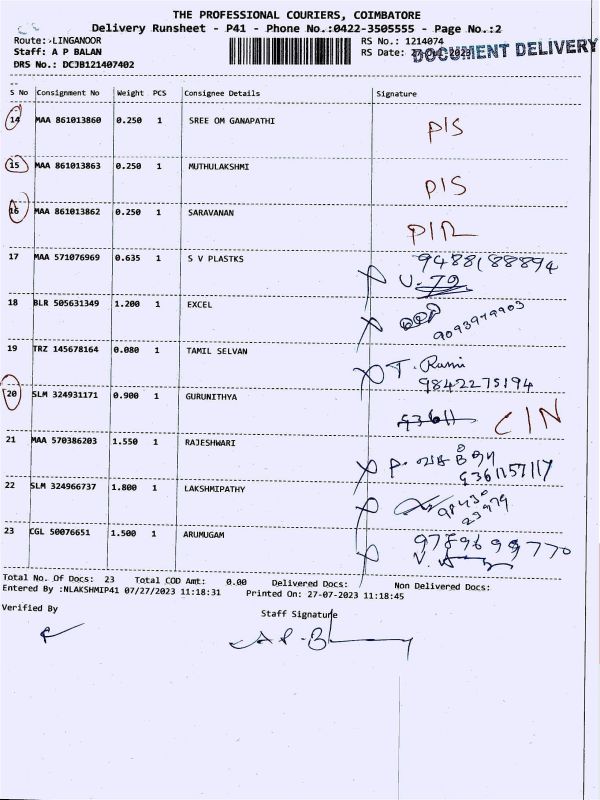 THE PROFESSIONAL COURIERS, COIMBATORE
Delivery Runsheet - P41 - Phone No.:0422-3505555 - Page No.:2
Route: LINGANOOR RS No.: 1214074
Staff: A P BALAN RS Date: 27-Jul-2023 DOCUMENT DELIVERY
DRS No.: DCJB121407402
S No Consignment No Weight PCS Consignee Details Signature
14 MAA 861013860 0.250 1 SREE OM GANAPATHI P/S
15 MAA 861013863 0.250 1 MUTHULAKSHMI P/S
16 MAA 861013862 0.250 1 SARAVANAN
17 MAA 571076969 0.635 1 S V PLASTKS 9488188894
18 BLR 505631349 1.200 1 EXCEL
19 TRZ 145678164 0.080 1 TAMIL SELVAN T. Rami
9842275194
20 SLM 324931171 0.900 1 GURUNITHYA C/N
21 MAA 570386203 1.550 1 RAJESHWARI
22 SLM 324966737 1.800 1 LAKSHMIPATHY
23 CGL 50076651 1.500 1 ARUMUGAM 9789699770
Total No. Of Docs: 23 Total COD Amt: 0.00 Delivered Docs: Non Delivered Docs:
Entered By :NLAKSHMIP41 07/27/2023 11:18:31 Printed On: 27-07-2023 11:18:45
Verified By Staff Signature